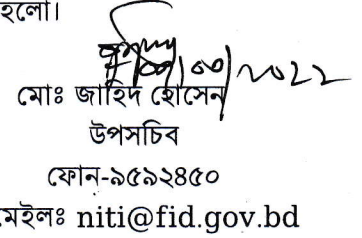 হলো।
মোঃ জাহিদ হোসেন
উপসচিব
ফোন-৯৫৯২৪৫০
মেইলঃ niti@fid.gov.bd